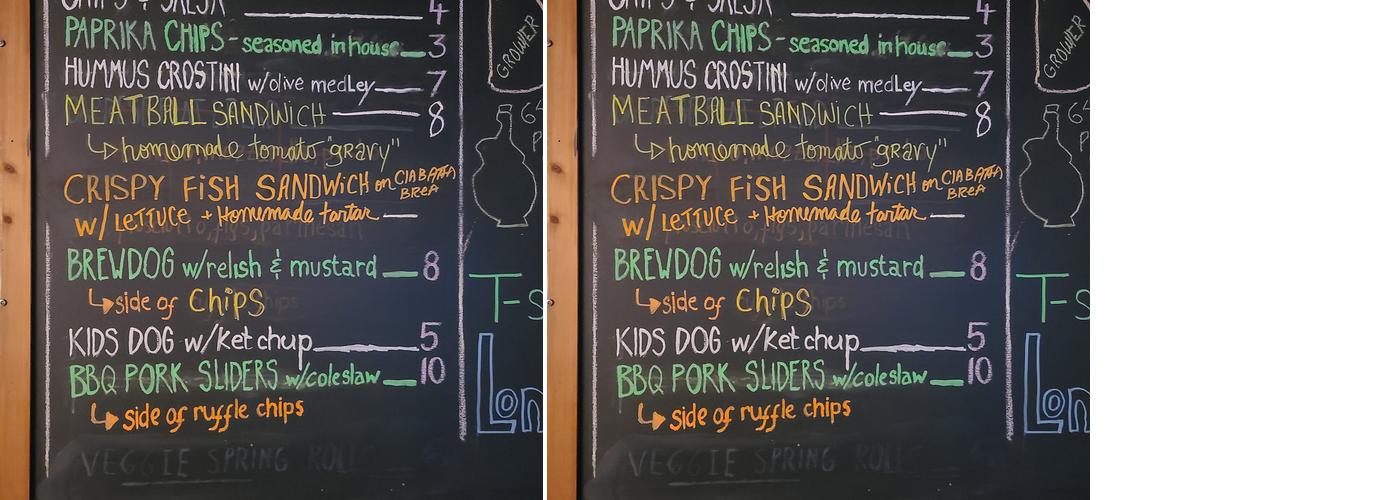 CHIPS & SALSA 4
PAPRIKA CHIPS - seasoned in house 3
HUMMUS CROSTINI w/olive medley 7
MEATBALL SANDWICH 8
homemade tomato "gravy"
CRISPY FISH SANDWICH on CIABATTA
BREA
w/ LETTUCE + Homemade tartar
BREWDOG w/relish & mustard 8
side of CHIPS
KIDS DOG w/Ketchup 5
BBQ PORK SLIDERS w/coleslaw 10
side of ruffle chips
VEGGIE SPRING ROLL
GROWLER
64
P
T-s
Lon
CHIPS & SALSA 4
PAPRIKA CHIPS - seasoned in house 3
HUMMUS CROSTINI w/olive medley 7
MEATBALL SANDWICH 8
homemade tomato "gravy"
CRISPY FISH SANDWICH on CIABATTA
BREA
w/ LETTUCE + Homemade tartar
BREWDOG w/relish & mustard 8
side of CHIPS
KIDS DOG w/Ketchup 5
BBQ PORK SLIDERS w/coleslaw 10
side of ruffle chips
VEGGIE SPRING ROLL
GROWLER
64
P
T-s
Lon